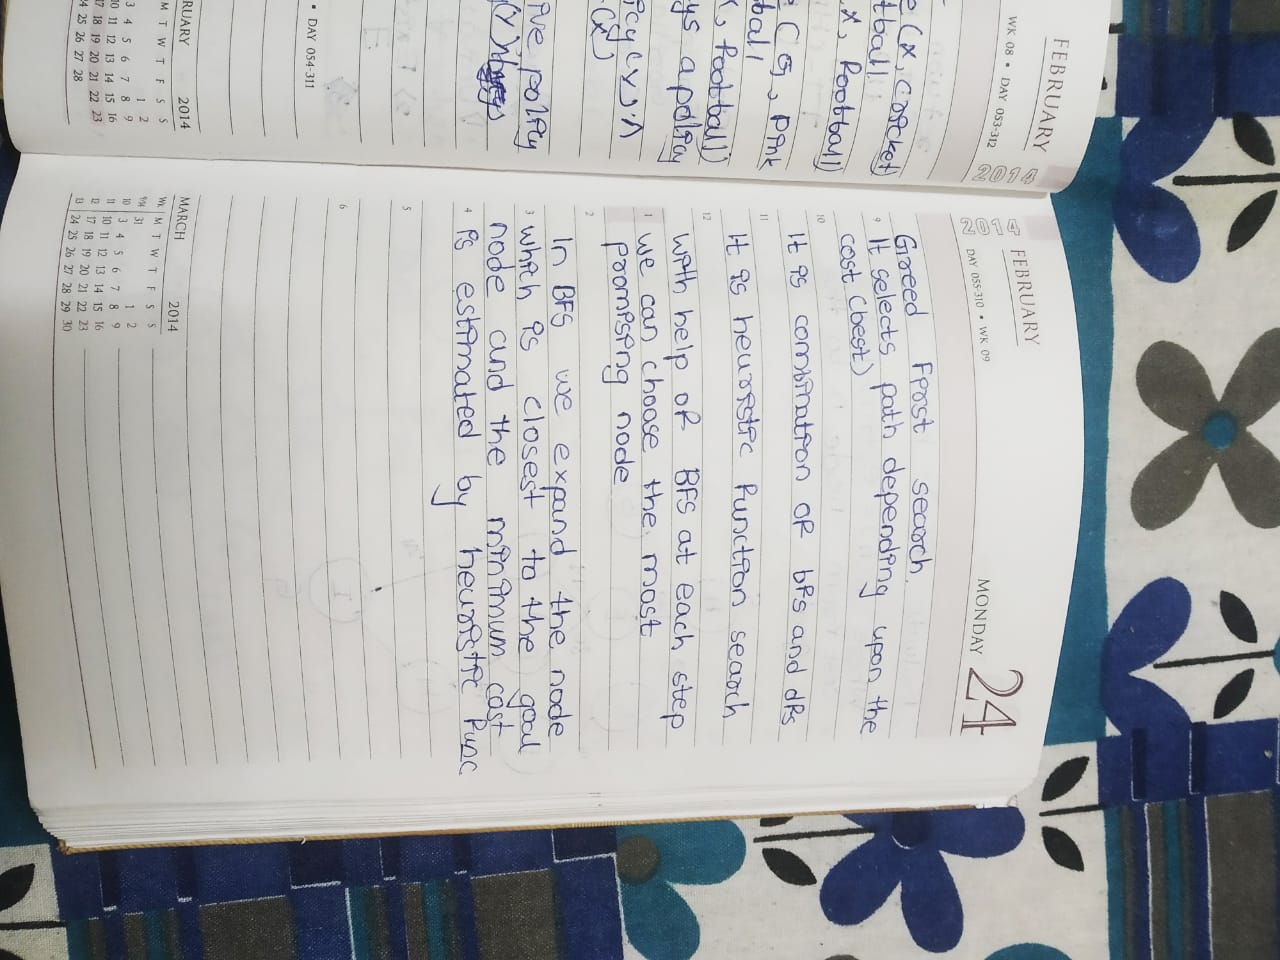 FEBRUARY
2014
WK 08 • DAY 053-312
e (x, cricket)
tball
x, football)
e ( G, pink
ball
x, football)
ys a policy
icy (y) ∧
(x)
ive policy
(y)
• DAY 054-311
RUARY 2014
M T W T F S S
1 2
3 4 5 6 7 8 9
10 11 12 13 14 15 16
17 18 19 20 21 22 23
24 25 26 27 28
2014
FEBRUARY
DAY 055-310 • WK 09
MONDAY 24
Greed First search.
9 It selects path depending upon the
cost (best)
10
It is combination of bfs and dfs
11
It is heuristic function search
12
with help of BFS at each step
1 we can choose the most
promising node
2
In BFS we expand the node
3 which is closest to the goal
node and the minimum cost
4 is estimated by heuristic func
5
6
MARCH 2014
Wk M T W T F S S
9/14 31 1 2
10 3 4 5 6 7 8 9
11 10 11 12 13 14 15 16
12 17 18 19 20 21 22 23
13 24 25 26 27 28 29 30